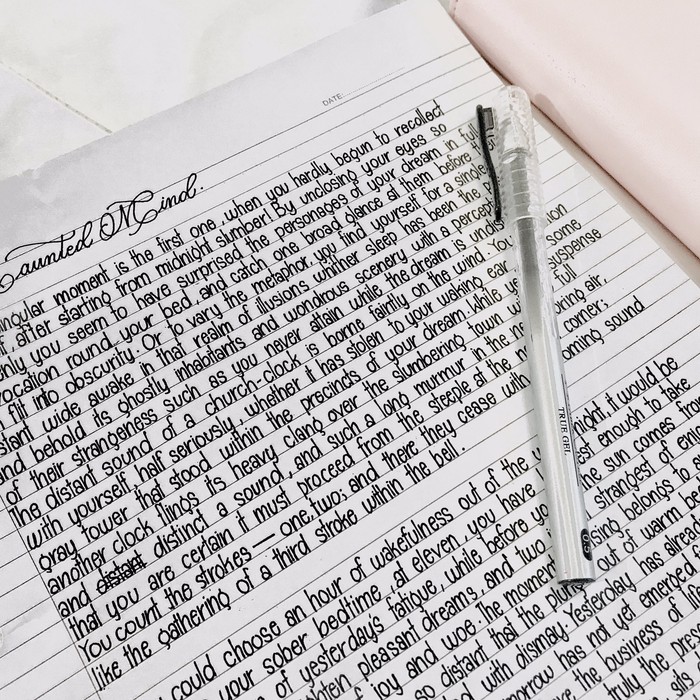 DATE:
aunted Mind.
moment is the first one, when you hardly begun to recollect
after starting from midnight slumber! By unclosing your eyes so
you seem to have surprised the personages of your dream in full
round your bed, and catch one broad glance at them before
flit into obscurity. Or, to vary the metaphor, you find yourself for a single
start wide awake in that realm of illusions whither sleep has been the
and behold its ghostly inhabitants and wondrous scenery with a
of their strangeness such as you never attain while the dream is
The distant sound of a church-clock is borne faintly on the wind. You
with yourself, half seriously, whether it has stolen to your waking ear some
gray tower that stood within the precincts of your dream. While suspense
another clock flings its heavy clang over the slumbering town full
and distant distinct a sound, and such a long murmur in the air,
that you are certain it must proceed from the steeple at the corner;
You count the strokes — one, two; and there they cease with sound
like the gathering of a third stroke within the bell.
could choose an hour of wakefulness out of the night, it would be
your sober bedtime, at eleven, you have enough to take
of yesterday's fatigue, while before the sun comes from
pleasant dreams, and two strangest of
joy and woe. The moment belongs to
so distant that the out of warm
with dismay. Yesterday has
has not yet emerged
the business of
the
TRUE GEL